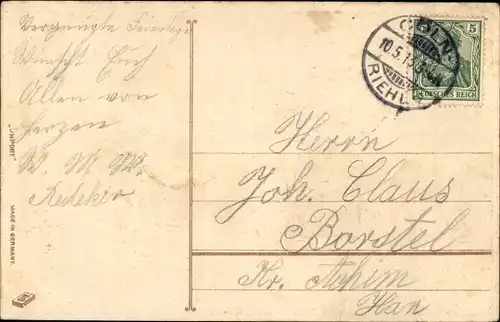 Vergnügte Feiertage
Wünscht Euch
Allen von
Herzen
W. M. W.
Redeker
"UNPORT"
MADE IN GERMANY.
CÖLN
10.5.13
RIEHL
5
DEUTSCHES REICH
Herrn
Joh. Claus
Borstel
Kr. Achim
Han